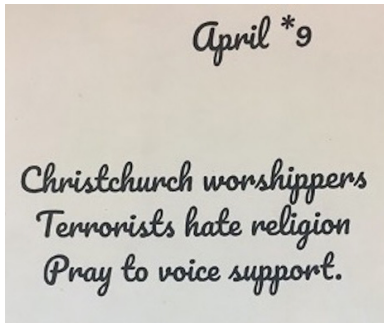 April *9
Christchurch worshippers
Terrorists hate religion
Pray to voice support.